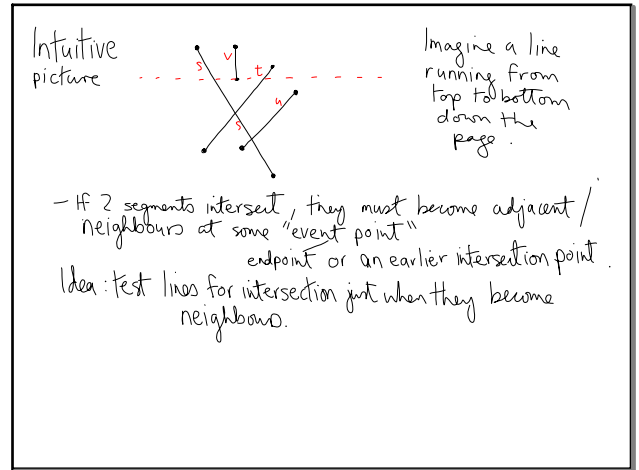 Intuitive
picture
s
v
t
s
u
Imagine a line
running from
top to bottom
down the
page.
- If 2 segments intersect, they must become adjacent /
neighbours at some "event point"
endpoint or an earlier intersection point.
Idea: test lines for intersection just when they become
neighbours.